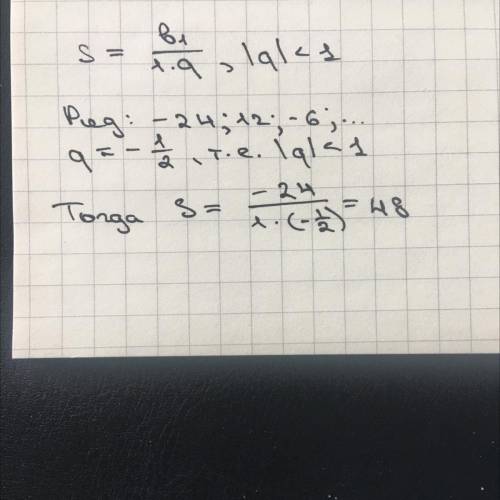 S = b₁/1·q, |q| < 1
Ряд: -24; 12; -6; ...
q = -1/2, т.е. |q| < 1
Тогда S = -24/1·(-1/2) = 48